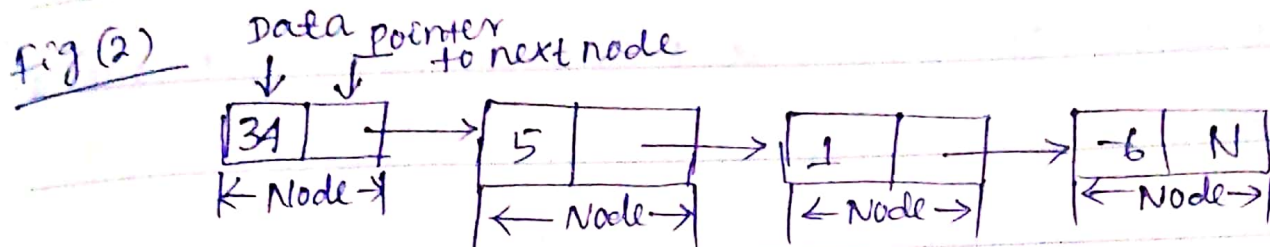 Fig (2)
Data pointer
to next node
34 5 1 -6 N
Node Node Node Node